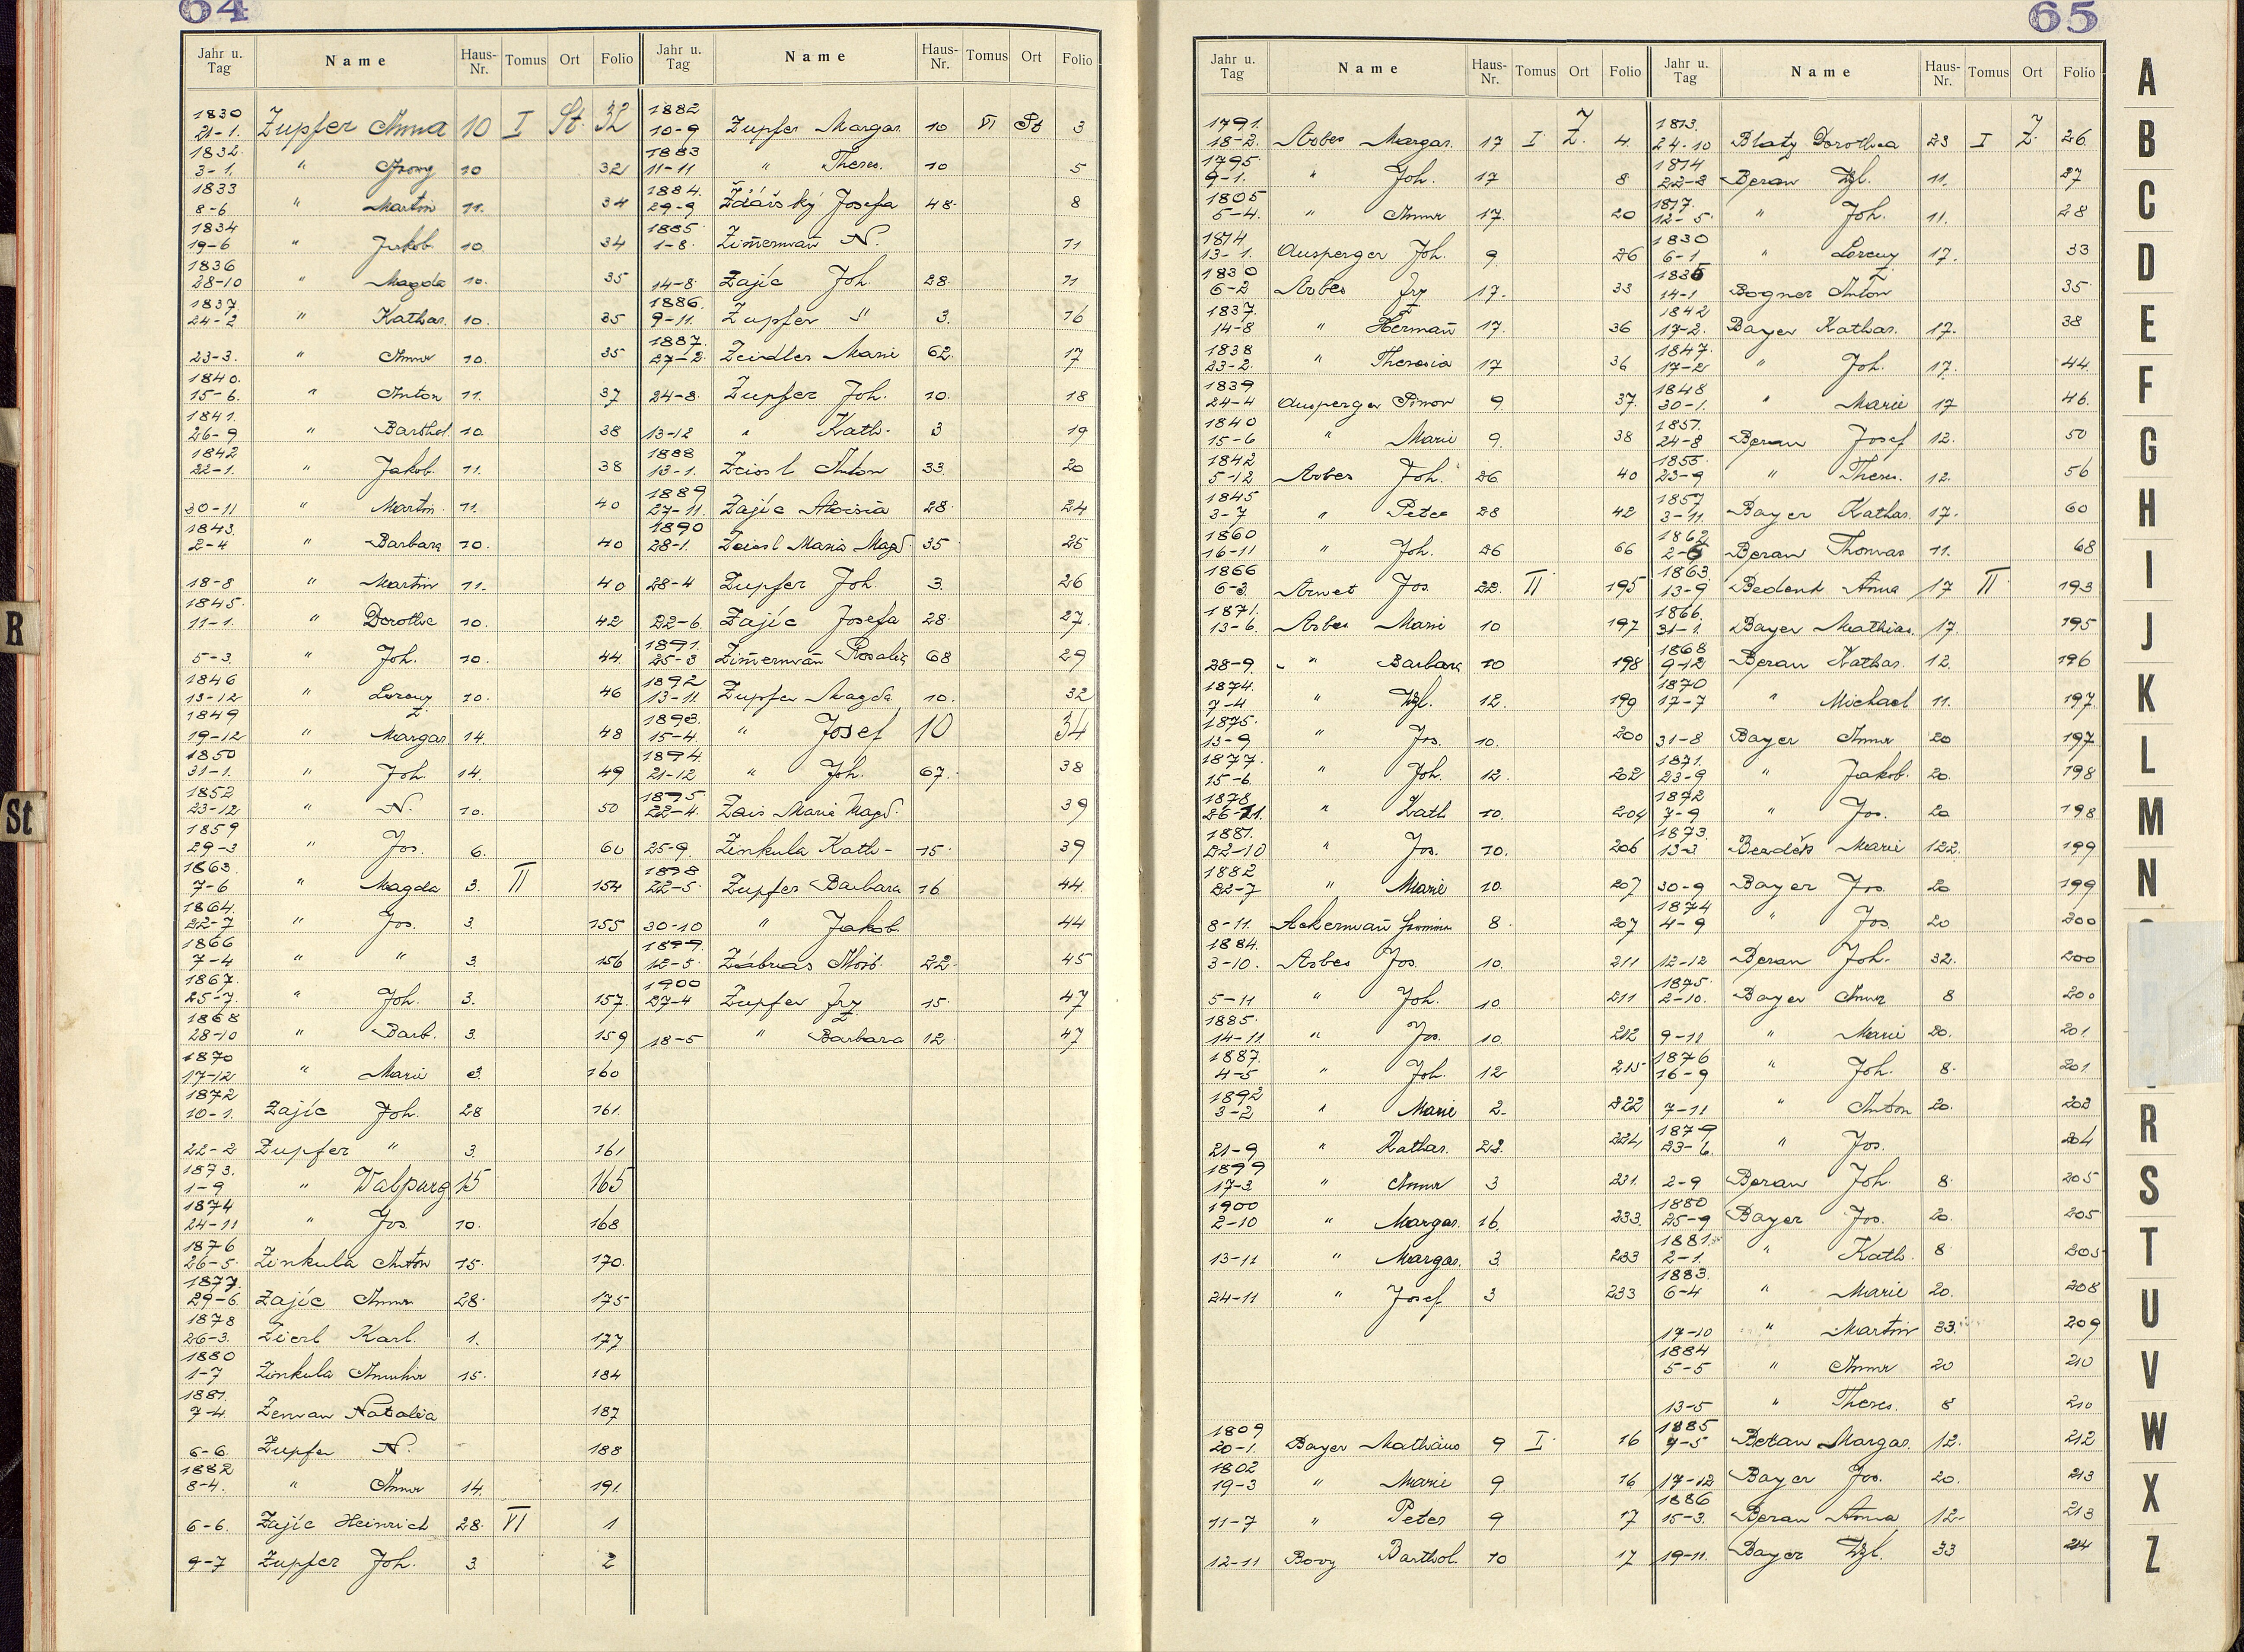 64
Jahr u. Tag Name Haus-Nr. Tomus Ort Folio Jahr u. Tag Name Haus-Nr. Tomus Ort Folio
1830 1882
21-1. Zupfer Anna 10 I St. 32 10-9 Zupfer Margar. 10 VI St 3
1832. 1883
3-1. " 10 32 11-11 " Theres. 10 5
1833 1884.
8-6 " Martin 11. 34 29-9 Žďárský Josefa 48. 8
1834 1885.
19-6 " Jakob 10. 34 1-8. Zim̄erman̄ N. 11
1836
28-10 " Magda 10. 35 14-8. Zajíc Joh. 28. 11
1837 1886.
24-2 " Kathar. 10. 35 9-11. Zupfer " 3. 16
1887.
23-3. " Anna 10. 35 27-2. Zeidler Marie 62. 17
1840.
15-6. " Anton 11. 37 24-8. Zupfer Joh. 10. 18
1841.
26-9 " Barthol. 10. 38 13-12 " Kath. 3 19
1842 1888
22-1. " Jakob. 11. 38 13-1. Zeisl Anton 33. 20
1889
30-11 " Martin. 11. 40 27-11. Zajíc Aloisia 28. 24
1843. 1890
2-4 " Barbara 10. 40 28-1. Zeisl Maria Magd. 35 25
18-8 " Martin 11. 40 28-4 Zupfer Joh. 3. 26
1845.
11-1. " Dorothe 10. 42 22-6. Zajíc Josefa 28. 27.
1891.
5-3. " Joh. 10. 44. 25-3 Zim̄erman̄ Rosalia 68 29
1846 1892
13-12 " Lorenz 10. 46 13-11. Zupfer Magda 10. 32
1849 1893.
19-12 " Margar. 14. 48 15-4. " Josef 10 34
1850 1894.
31-1. " Joh. 14. 49 21-12 " Joh. 67. 38
1852 1895
23-12 " N. 10. 50 22-4. Zeis Marie Magd. 39
1859
29-3 " Jos. 6. 60 25-9. Zinkula Kath- 15. 39
1863. 1898
7-6 " Magda 3. II 154 22-5. Zupfer Barbara 16 44.
1864.
22-7 " Jos. 3. 155 30-10 " Jakob. 44
1866 1899.
7-4 " " 3. 156 12-5. 22. 45
1867. 1900
25-7. " Joh. 3. 157. 27-4 Zupfer Frz. 15. 47
1868
28-10 " Barb. 3. 159 18-5 " Barbara 12. 47
1870
17-12 " Marie 3. 160
1872
10-1. Zajíc Joh. 28 161.
22-2 Zupfer " 3 161
1873.
1-9 " Walpurg 15 165
1874
24-11 " Jos. 10. 168
1876
26-5. Zinkula Anton 15. 170.
1877.
29-6. Zajíc Anna 28. 175
1878
26-3. Zierl Karl. 1. 177
1880
1-7 Zinkula 15. 184
1881.
7-4. Zeman Natalia 187
6-6. Zupfer N. 188
1882
8-4. " Anna 14. 191.
6-6. Zajíc Heinrich 28. VI 1
9-7 Zupfer Joh. 3. 2
65
Jahr u. Tag Name Haus-Nr. Tomus Ort Folio Jahr u. Tag Name Haus-Nr. Tomus Ort Folio
1791. 1813.
18-2. Arbes Margar. 17 I. Z. 4. 24-10 Blaty Dorothea 23 I Z. 26.
1795. 1814
9-1. " Joh. 17 8 22-3 Beran Wzl. 11. 27
1805 1817.
5-4. " Anna 17. 20 12-5. " Joh. 11. 28
1814 1830
13-1. Ausperger Joh. 9. 26 6-1 " Lorenz 17. 33
1830 1835
6-2 Arbes Frz 17. 33 14-1 Bogner Anton 35.
1837. 1842
14-8 " Herman̄ 17. 36 17-2. Bayer Kathar. 17. 38
1838 1847.
23-2. " Theresia 17 36 17-2 " Joh. 17. 44.
1839 1848
24-4 Ausperger Simon 9. 37. 30-1. " Marie 17 46.
1840 1851.
15-6 " Marie 9. 38 24-8 Beran Josef 12. 50
1842 1855.
5-12 Arbes Joh. 26. 40 23-9 " Theres. 12. 56
1845 1857
3-7 " Peter 28 42 3-11. Bayer Kathar. 17. 60
1860 1862
16-11 " Joh. 26 66 2-6 Beran Thomas 11. 68
1866 1863.
6-3. Arnet Jos. 22. II 195 13-9 Bedenk Anna 17 II. 193
1871. 1866.
13-6. Arbes Marie 10 197 31-1. Bayer Mathias. 17. 195
1868
28-9. " Barbara 10 198 9-12 Beran Kathar. 12. 196
1874. 1870
7-4 " Wzl. 12. 199 17-7 " Michael 11. 197.
1875.
13-9 " Jos. 10. 200 31-8 Bayer Anna 20 197
1877. 1871.
15-6. " Joh. 12. 202 23-9 " Jakob. 20. 198
1878 1872
26-11. " Kath 10. 204 7-9 " Jos. 20 198
1881. 1873.
22-10 " Jos. 10. 206 13-3 Marie 122. 199
1882
22-7 " Marie 10. 207 30-9 Bayer Jos. 20 199
1874
8-11. Ackerman̄ 8. 207 4-9 " Jos. 20 200
1884.
3-10. Arbes Jos. 10. 211 12-12 Beran Joh. 32. 200
1875.
5-11 " Joh. 10 211 2-10. Bayer Anna 8 200
1885.
14-11 " Jos. 10. 212 9-11 " Marie 20. 201
1887. 1876
4-5 " Joh. 12 215 16-9 " Joh. 8. 201
1892
3-2 " Marie 2. 222 7-11 " Anton 20. 203
1879
21-9 " Kathar. 22. 224 23-6. " Jos. 204
1899
17-3 " Anna 3 231. 2-9 Beran Joh. 8. 205
1900 1880
2-10 " Margar. 16. 233. 25-9 Bayer Jos. 20. 205
1881.
13-11 " Margar. 3. 233 2-1. " Kath. 8. 205
1883.
24-11 " Josef 3 233 6-4 " Marie 20. 208
17-10 " Martin 33. 209
1884
5-5 " Anna 20 210
13-5 " Theres. 8 210
1809 1885
20-1. Bayer Mathäus 9 I. 16 9-5 Beran Margar. 12. 212
1802
19-3 " Marie 9 16 17-12 Bayer Jos. 20. 213
1886
11-7 " Peter 9 17 15-3. Beran Anna 12- 213
12-11 Bovy Barthol. 10 17 19-11. Bayer Wzl. 33 214
R
St
A
B
C
D
E
F
G
H
I
J
K
L
M
N
R
S
T
U
V
W
X
Z